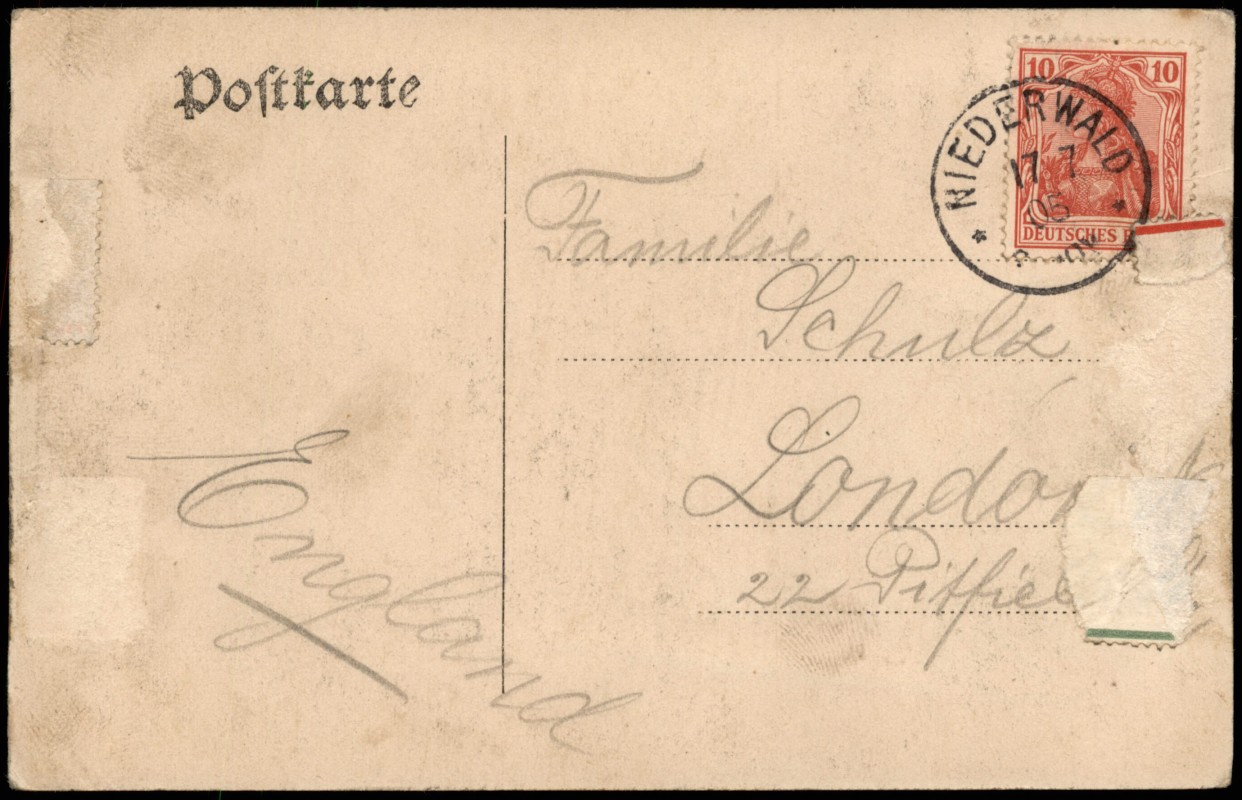 Postkarte
10 10
DEUTSCHES
NIEDERWALD
17 7
05
Familie
Schulz
London
22
England